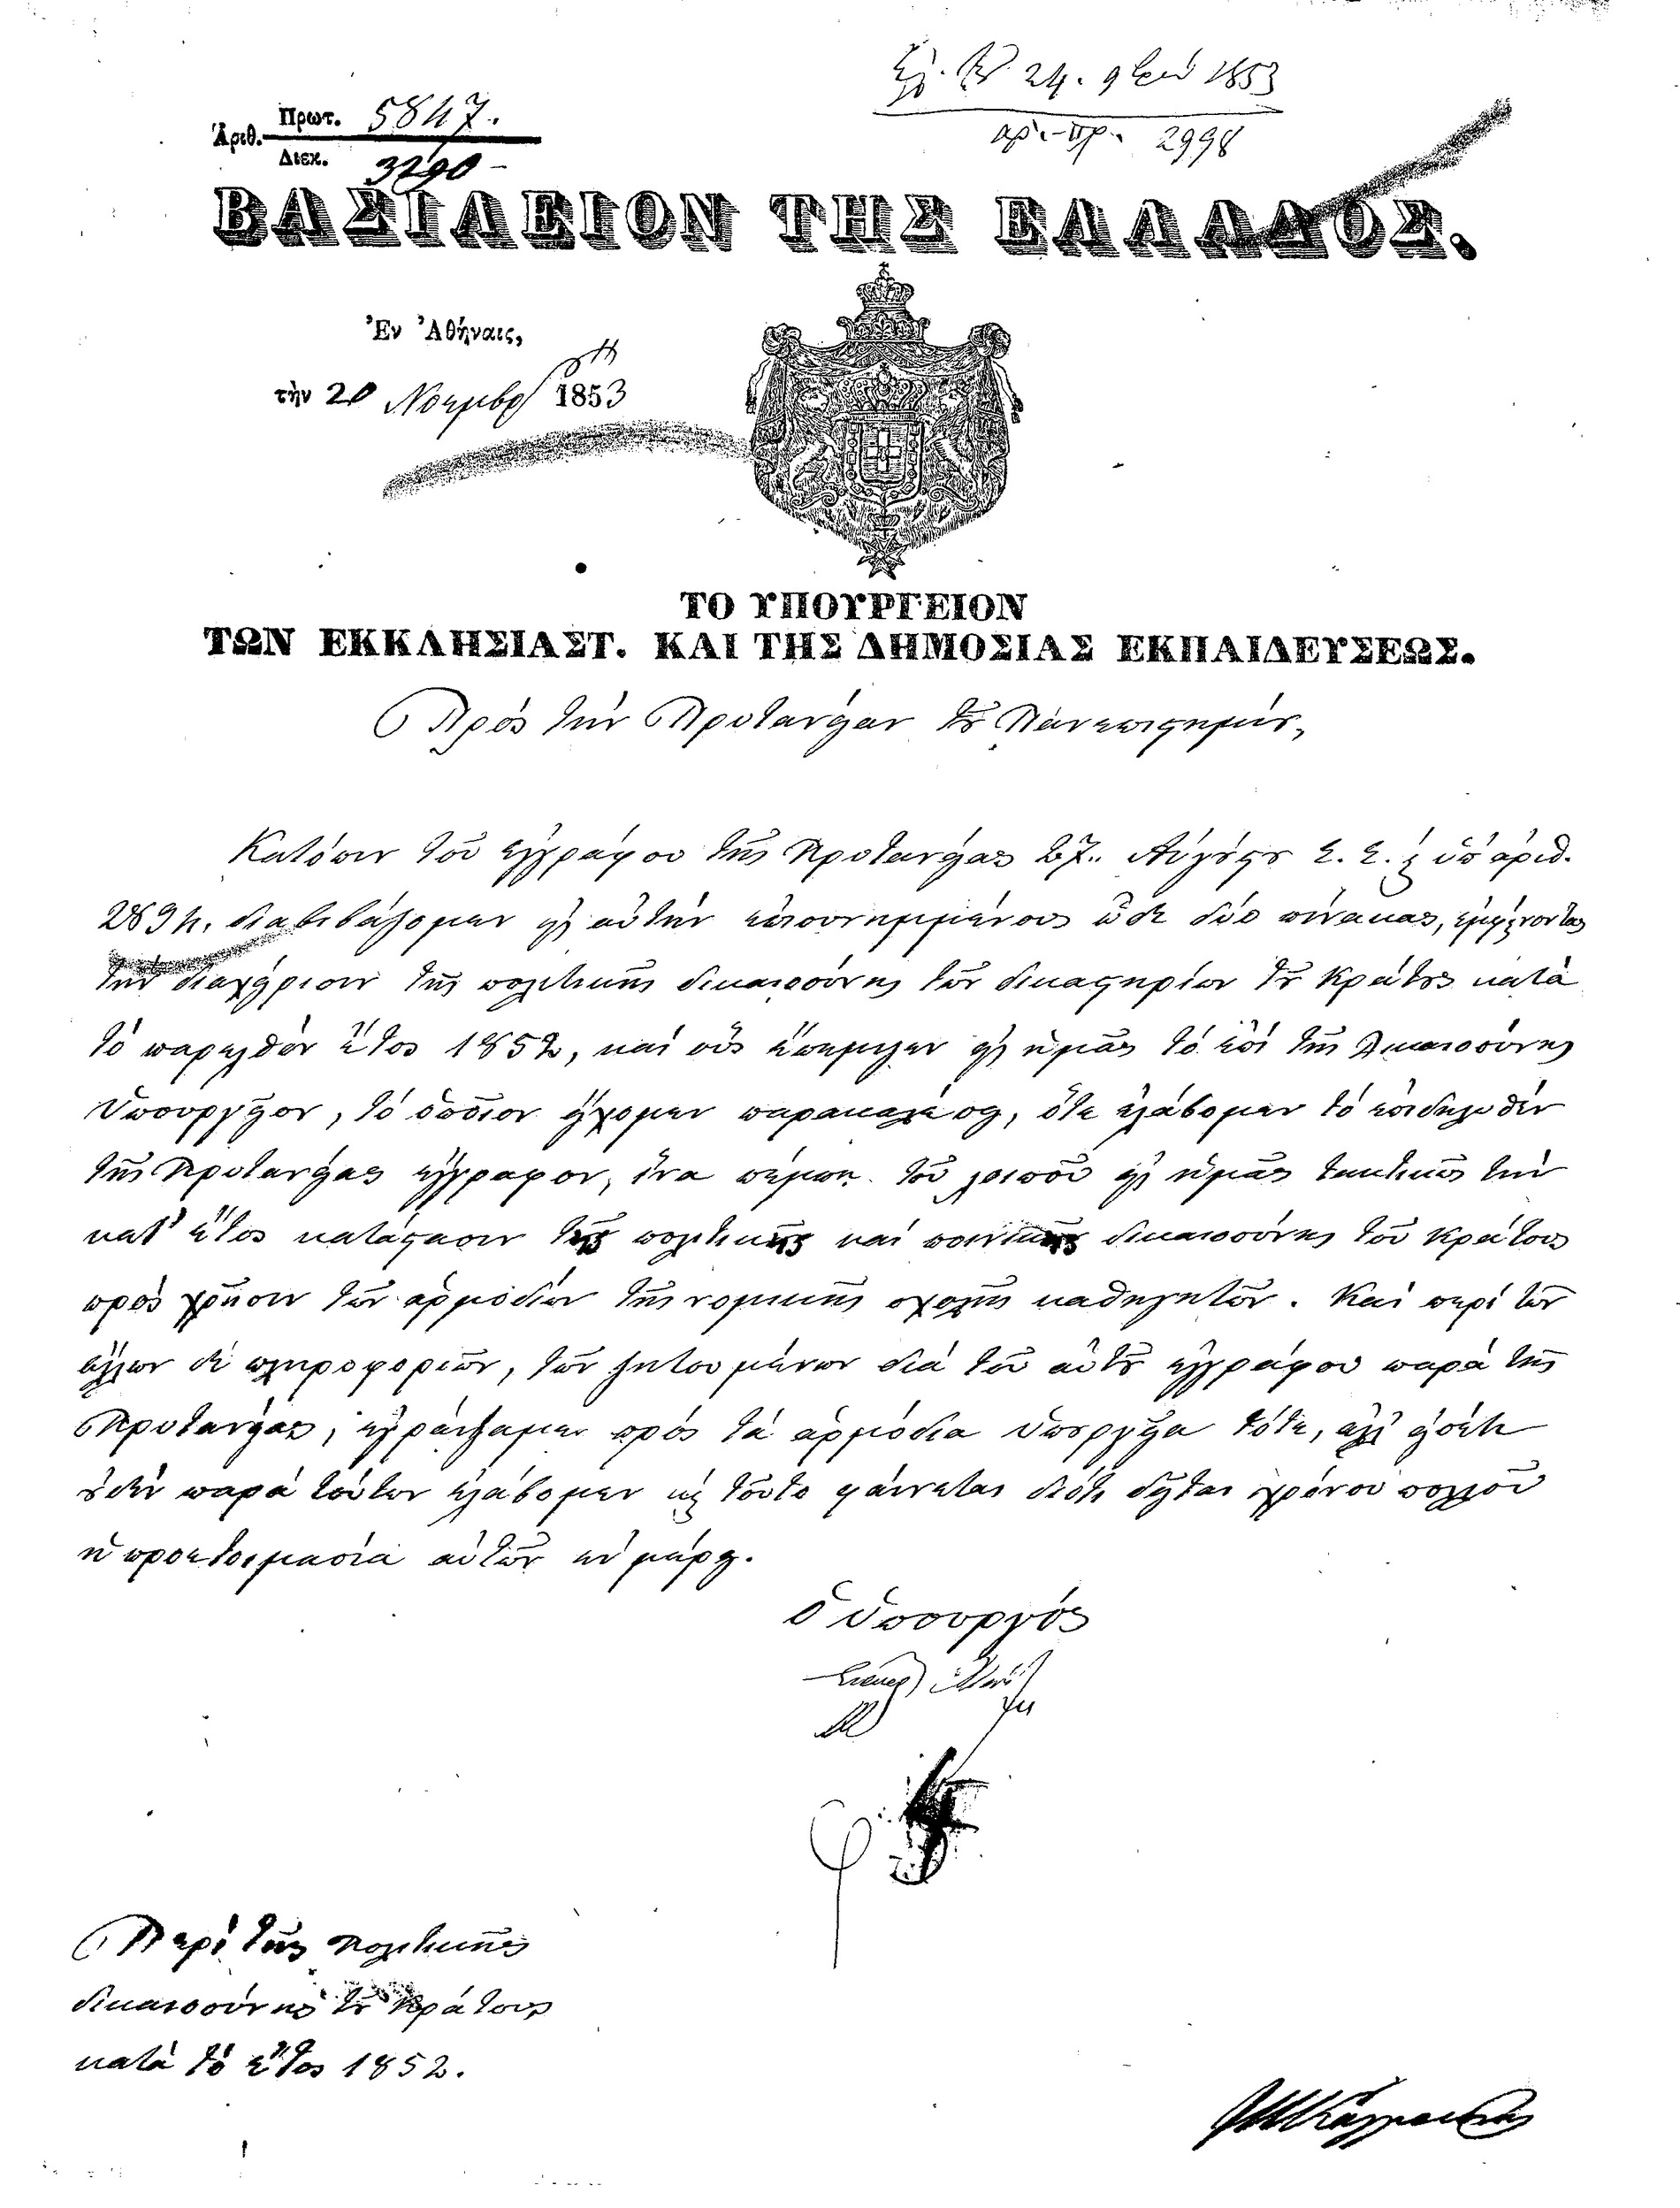 24. 9βρίου 1853
ἀρ. πρ. 2998
Ἀριθ. Πρωτ. 5847.
Διεκ. 3290
ΒΑΣΙΛΕΙΟΝ ΤΗΣ ΕΛΛΑΔΟΣ.
Ἐν Ἀθήναις,
τὴν 20 Νοεμβρ 1853
ΤΟ ΥΠΟΥΡΓΕΙΟΝ
ΤΩΝ ΕΚΚΛΗΣΙΑΣΤ. ΚΑΙ ΤΗΣ ΔΗΜΟΣΙΑΣ ΕΚΠΑΙΔΕΥΣΕΩΣ.
Πρὸς τὴν Πρυτανείαν τȣ͂ Πανεπιϛημίȣ,
Κατόπιν τοῦ ἐγγράφου τῆς Πρυτανείας Αὐγούϛȣ ἔ. ἔ. ὑπ' ἀριθ.
2894. διαβιβάζομεν εἰς αὐτὴν ἐπισυνημμένους ὧδε δύο πίνακας, ἐμφαίνοντας
τὴν διαχείρισιν τῆς πολιτικῆς δικαιοσύνης τῶν δικαϛηρίων τȣ͂ Κράτȣς κατὰ
τὸ παρελθὸν ἔτος 1852, καὶ οὓς ἔπεμψεν εἰς ἡμᾶς τὸ ἐπὶ τῆς Δικαιοσύνης
Ὑπουργεῖον, τὸ ὁποῖον εἴχομεν παρακαλέσει, ὅτε ἐλάβομεν τὸ ἐπιδηλωθὲν
τῆς Πρυτανείας ἔγγραφον, ἵνα πέμπῃ τοῦ λοιποῦ εἰς ἡμᾶς τακτικῶς τὴν
κατ' ἔτος κατάϛασιν τῆς πολιτικῆς καὶ ποινικῆς δικαιοσύνης τοῦ Κράτους
πρὸς χρῆσιν τῶν ἁρμοδίων τῆς νομικῆς σχολῆς καθηγητῶν. Καὶ περὶ τῶν
ἄλλων δὲ πληροφοριῶν, τῶν ζητουμένων διὰ τοῦ αὐτȣ͂ ἐγγράφου παρὰ τῆς
Πρυτανείας, ἐγράψαμεν πρὸς τὰ ἁρμόδια Ὑπȣργεῖα τότε, ἀλλ' εἰσέτι
ȣ̓δὲν παρὰ τούτων ἐλάβομεν καὶ τοῦτο φαίνεται διότι δεῖται χρόνου πολλοῦ
ἡ προετοιμασία αὐτῶν ἐν μέρει.
Ὁ Ὑπουργὸς
Περὶ τῆς πολιτικῆς
δικαιοσύνης τȣ͂ Κράτους
κατὰ τὸ ἔτος 1852.